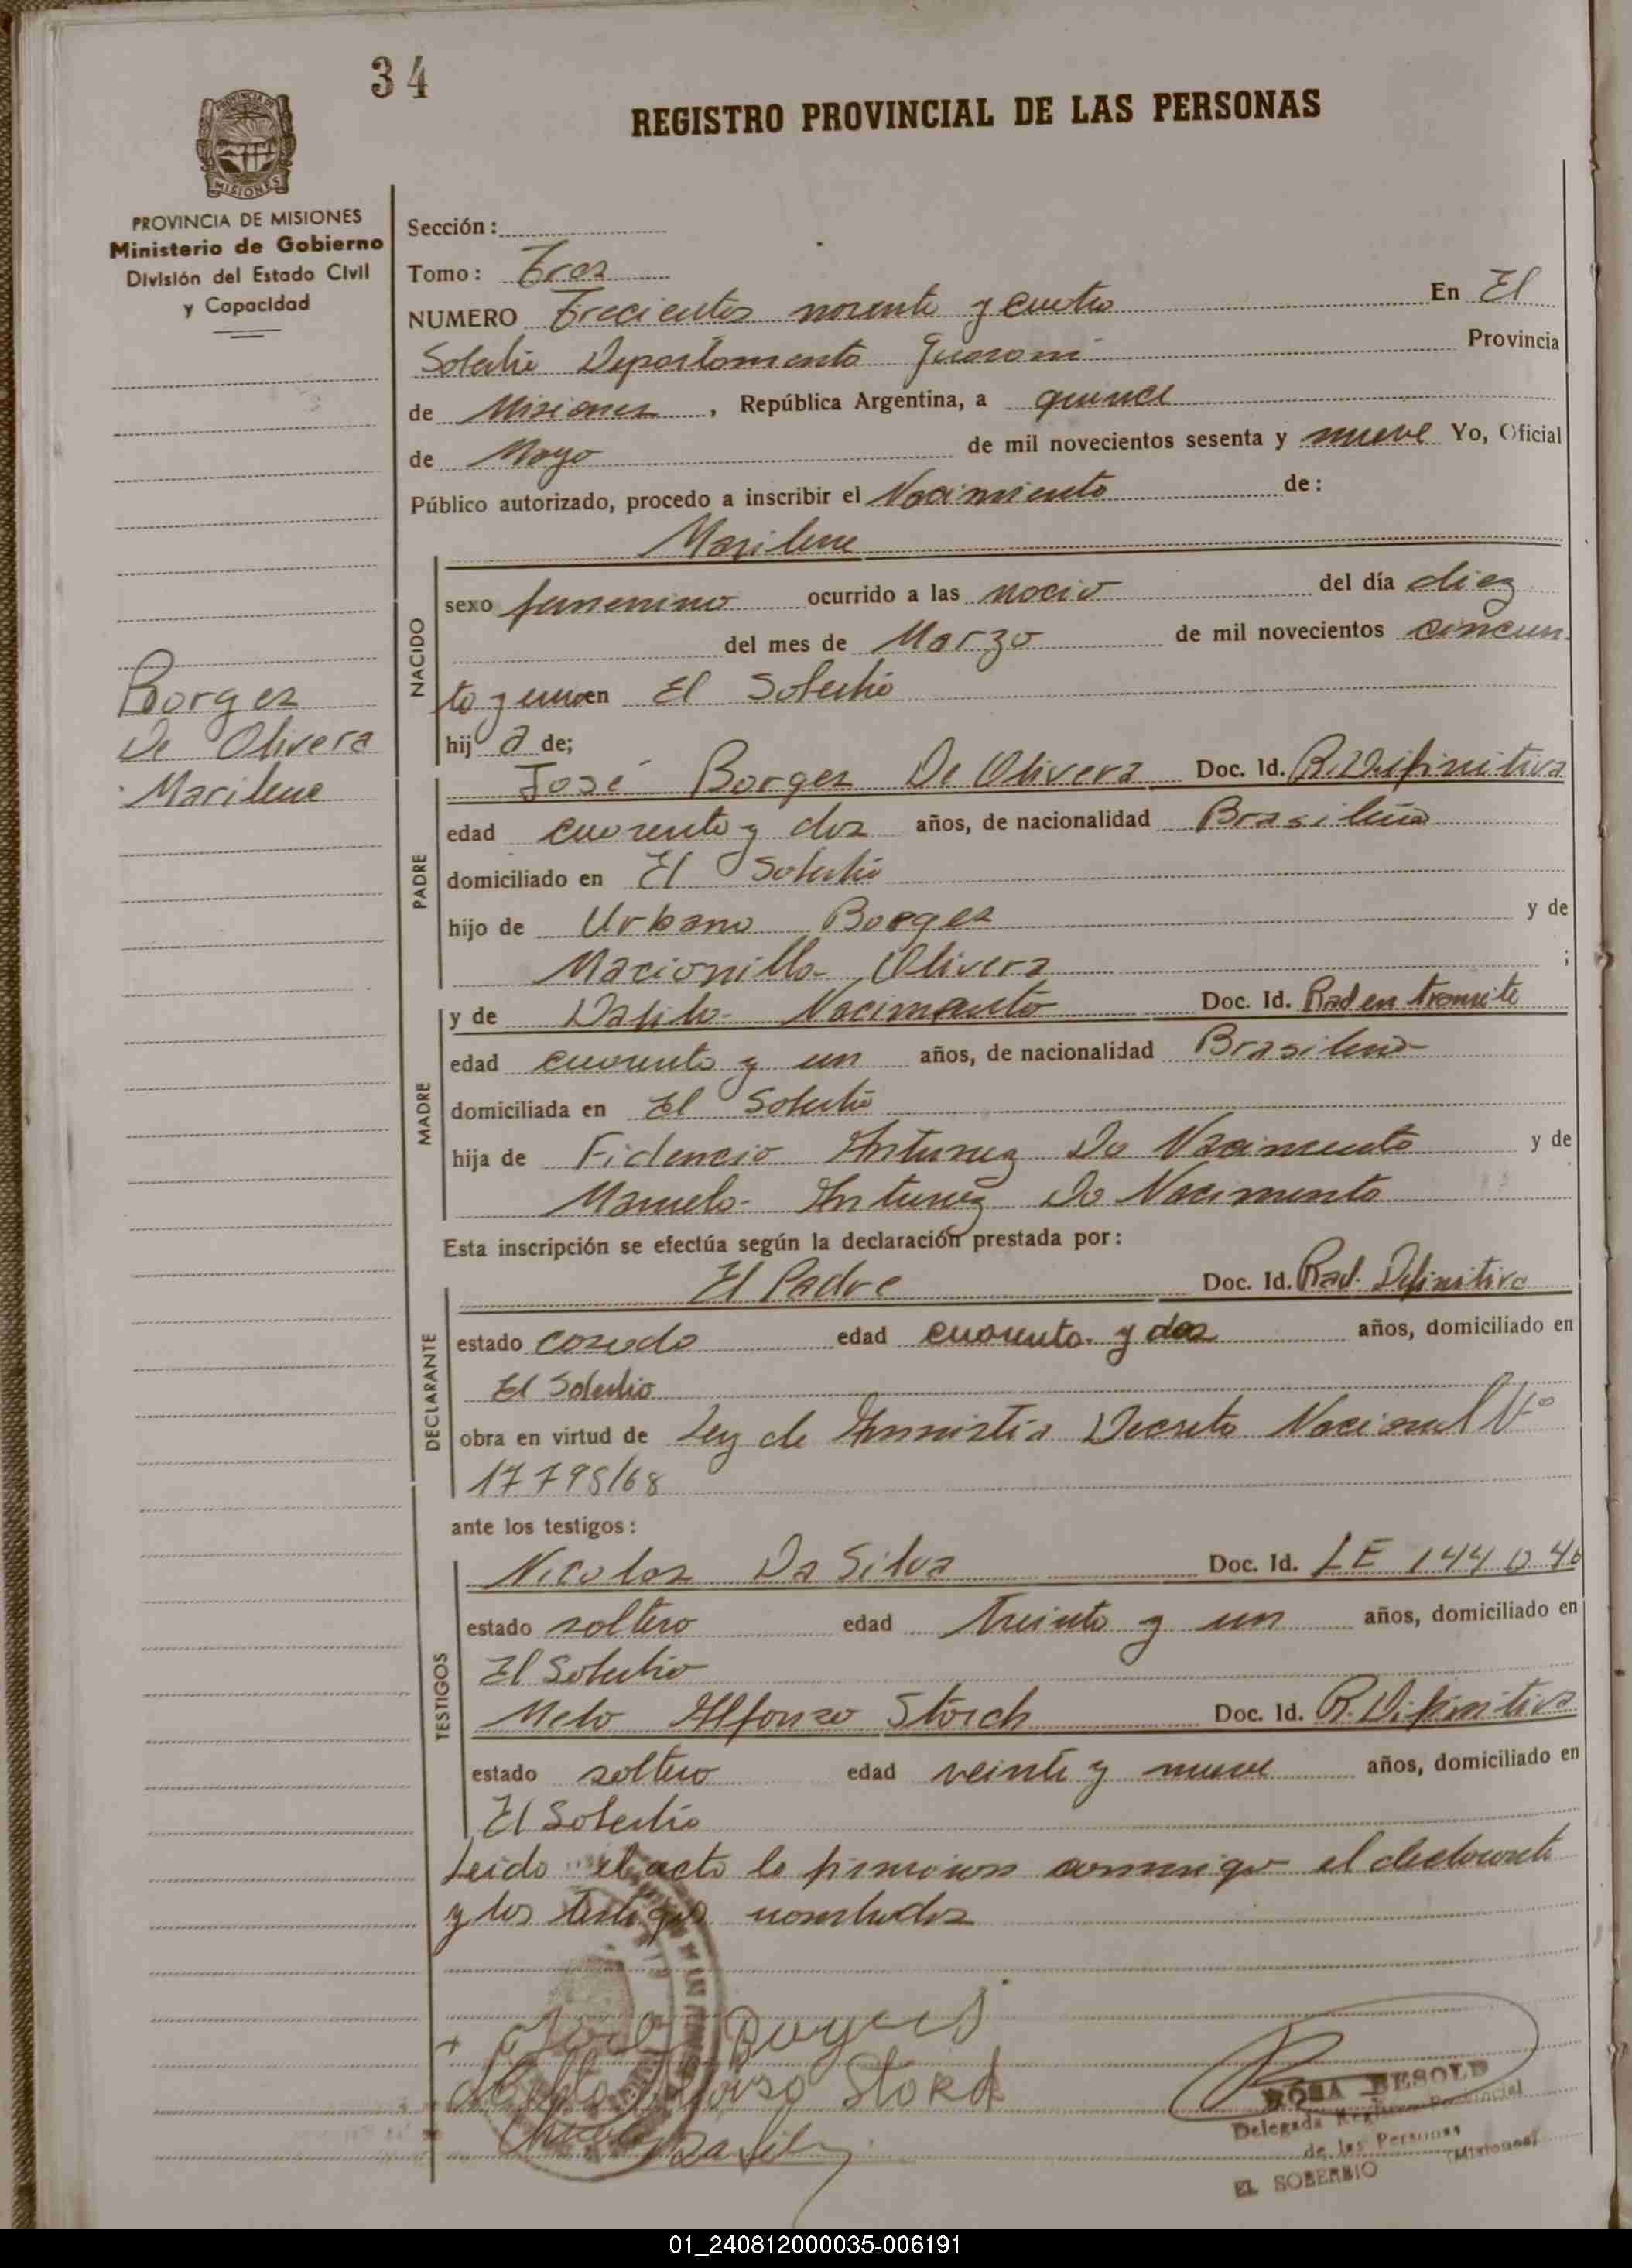 34
REGISTRO PROVINCIAL DE LAS PERSONAS
PROVINCIA DE
MISIONES
PROVINCIA DE MISIONES
Ministerio de Gobierno
División del Estado Civil
y Capacidad
Sección:
Tomo: Tres
NUMERO Trecientos noventa y cuatro En El
Soberbio Departamento Guarani Provincia
de Misiones, República Argentina, a quince
de Mayo de mil novecientos sesenta y nueve Yo, Oficial
Público autorizado, procedo a inscribir el Nacimiento de:
Marilene
NACIDO
sexo femenino ocurrido a las del día diez
del mes de Marzo de mil novecientos cincuen
ta y en El Soberbio
hija de;
Borges
De Olivera
Marilene
PADRE
José Borges De Olivera Doc. Id. R. Difinitiva
edad cuarenta y dos años, de nacionalidad Brasileña
domiciliado en El Soberbio
hijo de Urbano Borges y de
Olivera ;
MADRE
y de Nacimento Doc. Id. Rad en tramite
edad cuarenta y un años, de nacionalidad Brasilena
domiciliada en El Soberbio
hija de Fidencio Antunez Do Nacimento y de
Manuela Antunez Do Nacimento
Esta inscripción se efectúa según la declaración prestada por:
DECLARANTE
El Padre Doc. Id. Rad. Difinitiva
estado casado edad cuarenta y dos años, domiciliado en
El Soberbio
obra en virtud de Ley de Amnistia Decreto Nacional Nº
17795/68
ante los testigos:
TESTIGOS
Nicolas Da Silva Doc. Id. LE
estado soltero edad treinta y un años, domiciliado en
El Soberbio
Alfonso Storch Doc. Id. R. Difinitiva
estado soltero edad veinte y nueve años, domiciliado en
El Soberbio
Leido el acta la firmaron conmigo el declarante
y los testigos nombrados
ROSA BESOLD
Delegada Registro Provincial
de las Personas
EL SOBERBIO (Misiones)
01_240812000035-006191